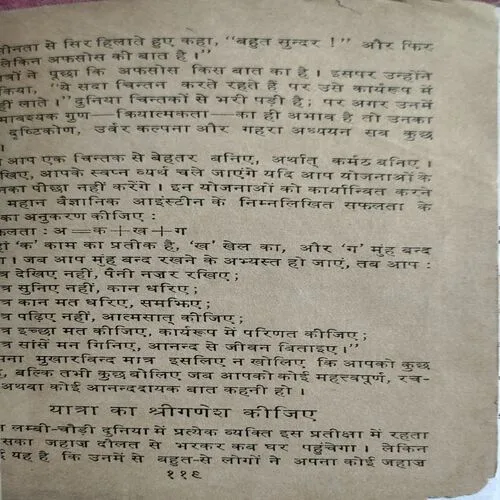 शीनता से सिर हिलाते हुए कहा, "बहुत सुन्दर !" और फिर
लेकिन अफसोस की बात है ।"
त्रों ने पूछा कि अफसोस किस बात का है । इसपर उन्होंने
किया, "ये सदा चिन्तन करते रहते हैं पर उसे कार्यरूप में
हीं लाते ।" दुनिया चिन्तकों से भरी पड़ी है; पर अगर उनमें
मावश्यक गुण—क्रियात्मकता—का ही अभाव है तो उनका
दृष्टिकोण, उर्वर कल्पना और गहरा अध्ययन सब कुछ
।
आप एक चिन्तक से बेहतर बनिए, अर्थात् कर्मठ बनिए ।
खिए, आपके स्वप्न व्यर्थ चले जाएंगे यदि आप योजनाओं के
नका पीछा नहीं करेंगे । इन योजनाओं को कार्यान्वित करने
महान वैज्ञानिक आइंस्टीन के निम्नलिखित सफलता के
का अनुकरण कीजिए :
फलता : अ=क+ख+ग
हां 'क' काम का प्रतीक है, 'ख' खेल का, और 'ग' मुंह बन्द
ा । जब आप मुंह बन्द रखने के अभ्यस्त हो जाएं, तब आप :
त्र देखिए नहीं, पैनी नज़र रखिए;
त्र सुनिए नहीं, कान धरिए;
त्र कान मत धरिए, समझिए;
त्र पढ़िए नहीं, आत्मसात् कीजिए;
त्र इच्छा मत कीजिए, कार्यरूप में परिणत कीजिए;
त्र सांसें मन गिनिए, आनन्द से जीवन बिताइए ।"
पना मुखारबिन्द मात्र इसलिए न खोलिए कि आपको कुछ
, बल्कि तभी कुछ बोलिए जब आपको कोई महत्त्वपूर्ण, रच-
अथवा कोई आनन्ददायक बात कहनी हो ।
यात्रा का श्रीगणेश कीजिए
लम्बी-चौड़ी दुनिया में प्रत्येक व्यक्ति इस प्रतीक्षा में रहता
सका जहाज़ दौलत से भरकर कब घर पहुंचेगा । लेकिन
यह है कि उनमें से बहुत-से लोगों ने अपना कोई जहाज़
११९